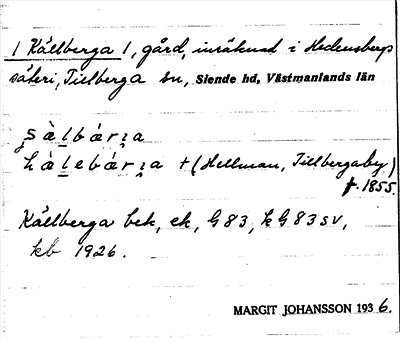 1 Källberga 1, gård, inräknad i Hedensbergs
säteri, Tillberga sn, Siende hd, Västmanlands län
s̀älbárɪa
hàlebárɪa + (Hellman, Tillbergaby)
f. 1855.
Källberga bek, ek, G83, kG83SV,
kb 1926.
MARGIT JOHANSSON 1936.